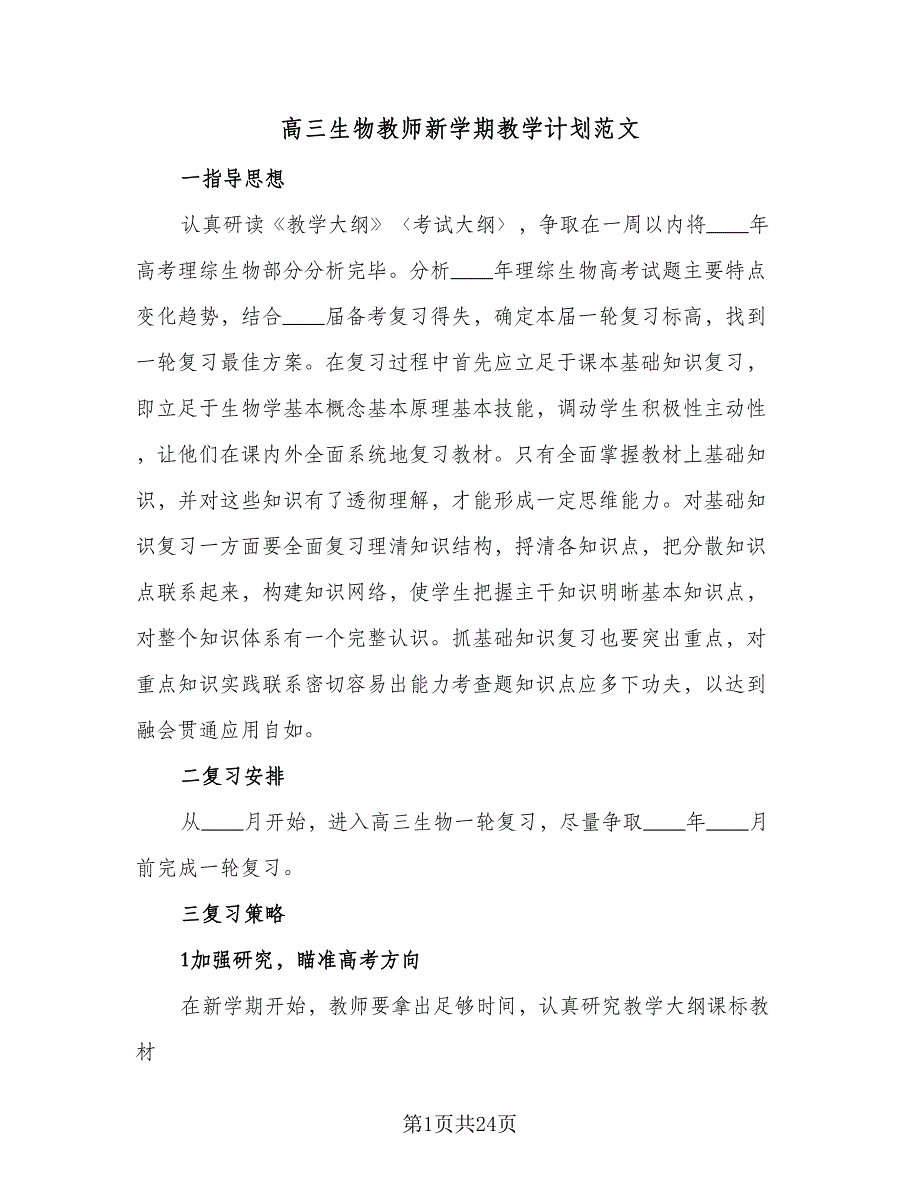 高三生物教师新学期教学计划范文
一指导思想
认真研读《教学大纲》〈考试大纲〉，争取在一周以内将____年
高考理综生物部分分析完毕。分析____年理综生物高考试题主要特点
变化趋势，结合____届备考复习得失，确定本届一轮复习标高，找到
一轮复习最佳方案。在复习过程中首先应立足于课本基础知识复习，
即立足于生物学基本概念基本原理基本技能，调动学生积极性主动性
，让他们在课内外全面系统地复习教材。只有全面掌握教材上基础知
识，并对这些知识有了透彻理解，才能形成一定思维能力。对基础知
识复习一方面要全面复习理清知识结构，捋清各知识点，把分散知识
点联系起来，构建知识网络，使学生把握主干知识明晰基本知识点，
对整个知识体系有一个完整认识。抓基础知识复习也要突出重点，对
重点知识实践联系密切容易出能力考查题知识点应多下功夫，以达到
融会贯通应用自如。
二复习安排
从____月开始，进入高三生物一轮复习，尽量争取____年____月
前完成一轮复习。
三复习策略
1加强研究，瞄准高考方向
在新学期开始，教师要拿出足够时间，认真研究教学大纲课标教
材
第1页共24页